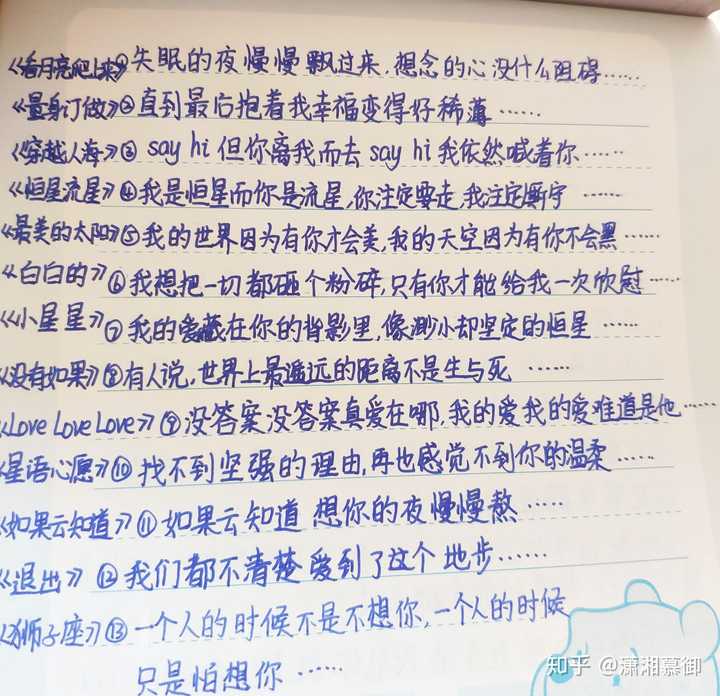 《看月亮爬上来》①失眠的夜慢慢飘过来,想念的心没什么阻碍……
《量身订做》②直到最后抱着我幸福变得好稀薄……
《穿越人海》③ say hi 但你离我而去 say hi 我依然喊着你……
《恒星流星》④我是恒星而你是流星,你注定要走,我注定要守……
《最美的太阳》⑤我的世界因为有你才会美,我的天空因为有你不会黑……
《白白的》⑥我想把一切都砸个粉碎,只有你才能给我一次欣慰……
《小星星》⑦我的爱藏在你的背影里,像渺小却坚定的恒星……
《没有如果》⑧有人说,世界上最遥远的距离不是生与死……
《Love Love Love》⑨没答案没答案真爱在哪,我的爱我的爱难道是他……
《星语心愿》⑩找不到坚强的理由,再也感觉不到你的温柔……
《如果云知道》⑪如果云知道 想你的夜慢慢熬……
《退出》⑫我们都不清楚爱到了这个地步……
《狮子座》⑬一个人的时候不是不想你,一个人的时候
只是怕想你……
知乎 @潇湘慕御